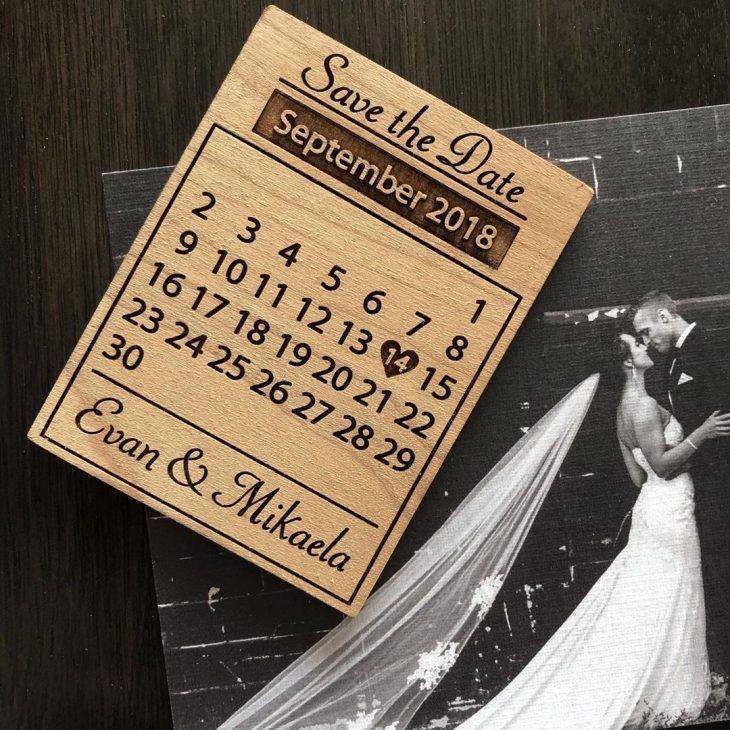 Save the Date
September 2018
1
2 3 4 5 6 7 8
9 10 11 12 13 14 15
16 17 18 19 20 21 22
23 24 25 26 27 28 29
30
Evan & Mikaela